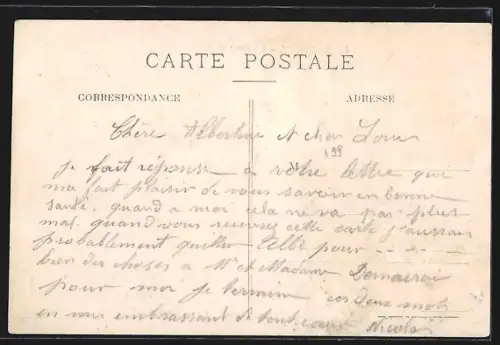 CARTE POSTALE
CORRESPONDANCE ADRESSE
Chère Albertine et cher Louis
je fait réponse a votre lettre qui
ma fait plaisir de vous savoir en bonne
santé. quand a moi cela ne va pas plus
mal. quand vous recevrez cette carte j'aurais
probablement quitter pour
bien des choses a Mr et Madame
pour moi je termine ces deux mots
en vous embrassant de tout coeur Nicolas